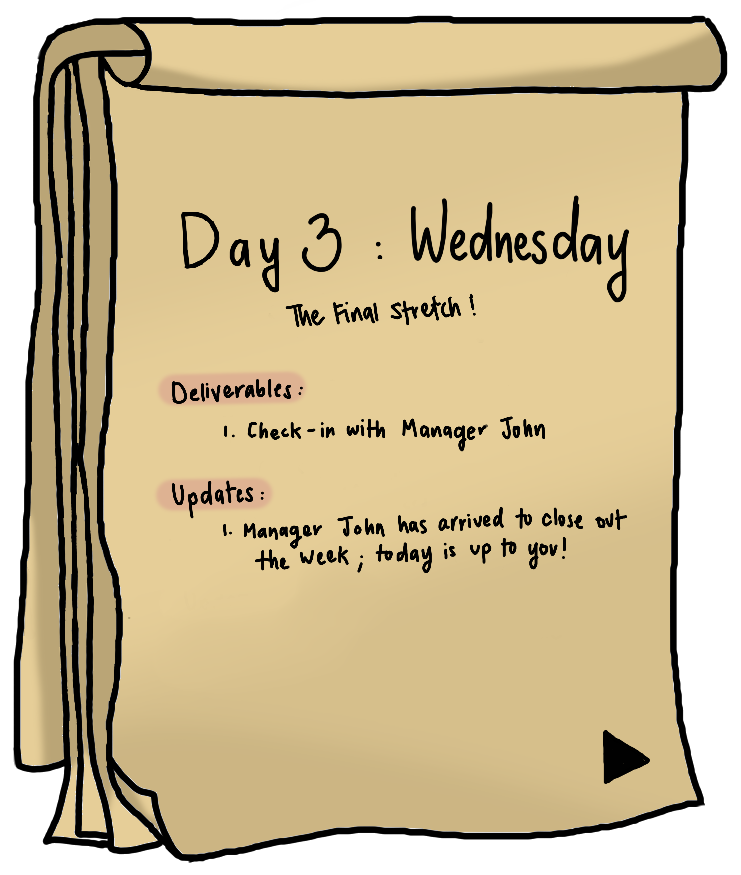 Day 3 : Wednesday
The Final Stretch!
Deliverables:
1. Check-in with Manager John
Updates:
1. Manager John has arrived to close out
the week; today is up to you!